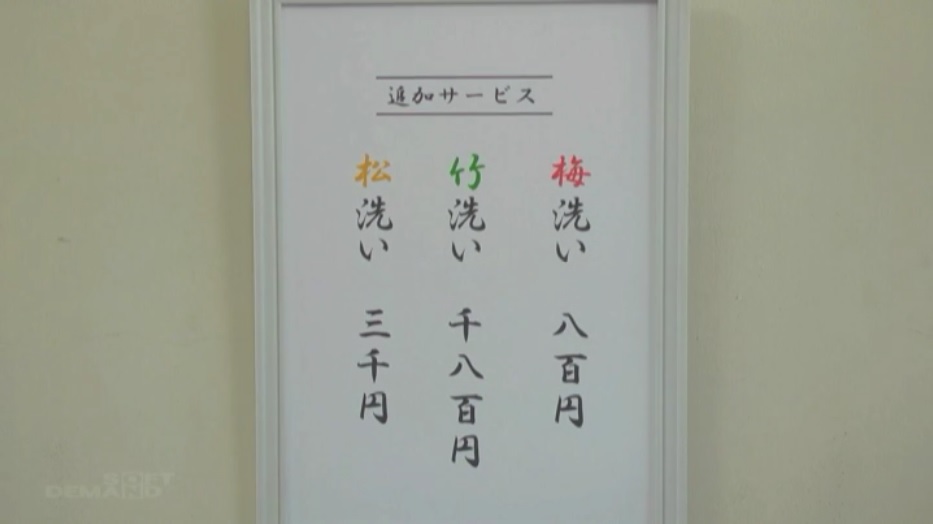 追加サービス
梅洗い 八百円
竹洗い 千八百円
松洗い 三千円
DEMAND